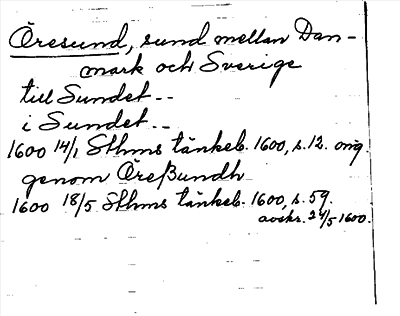 Öresund, sund mellan Dan-
mark och Sverige
till Sundet--
i Sundet--
1600 14/1 Sthms tänkeb. 1600, s.12. orig.
genom Öreßundh
1600 18/5 Sthms tänkeb. 1600, s.59.
avskr. 24/5 1600.